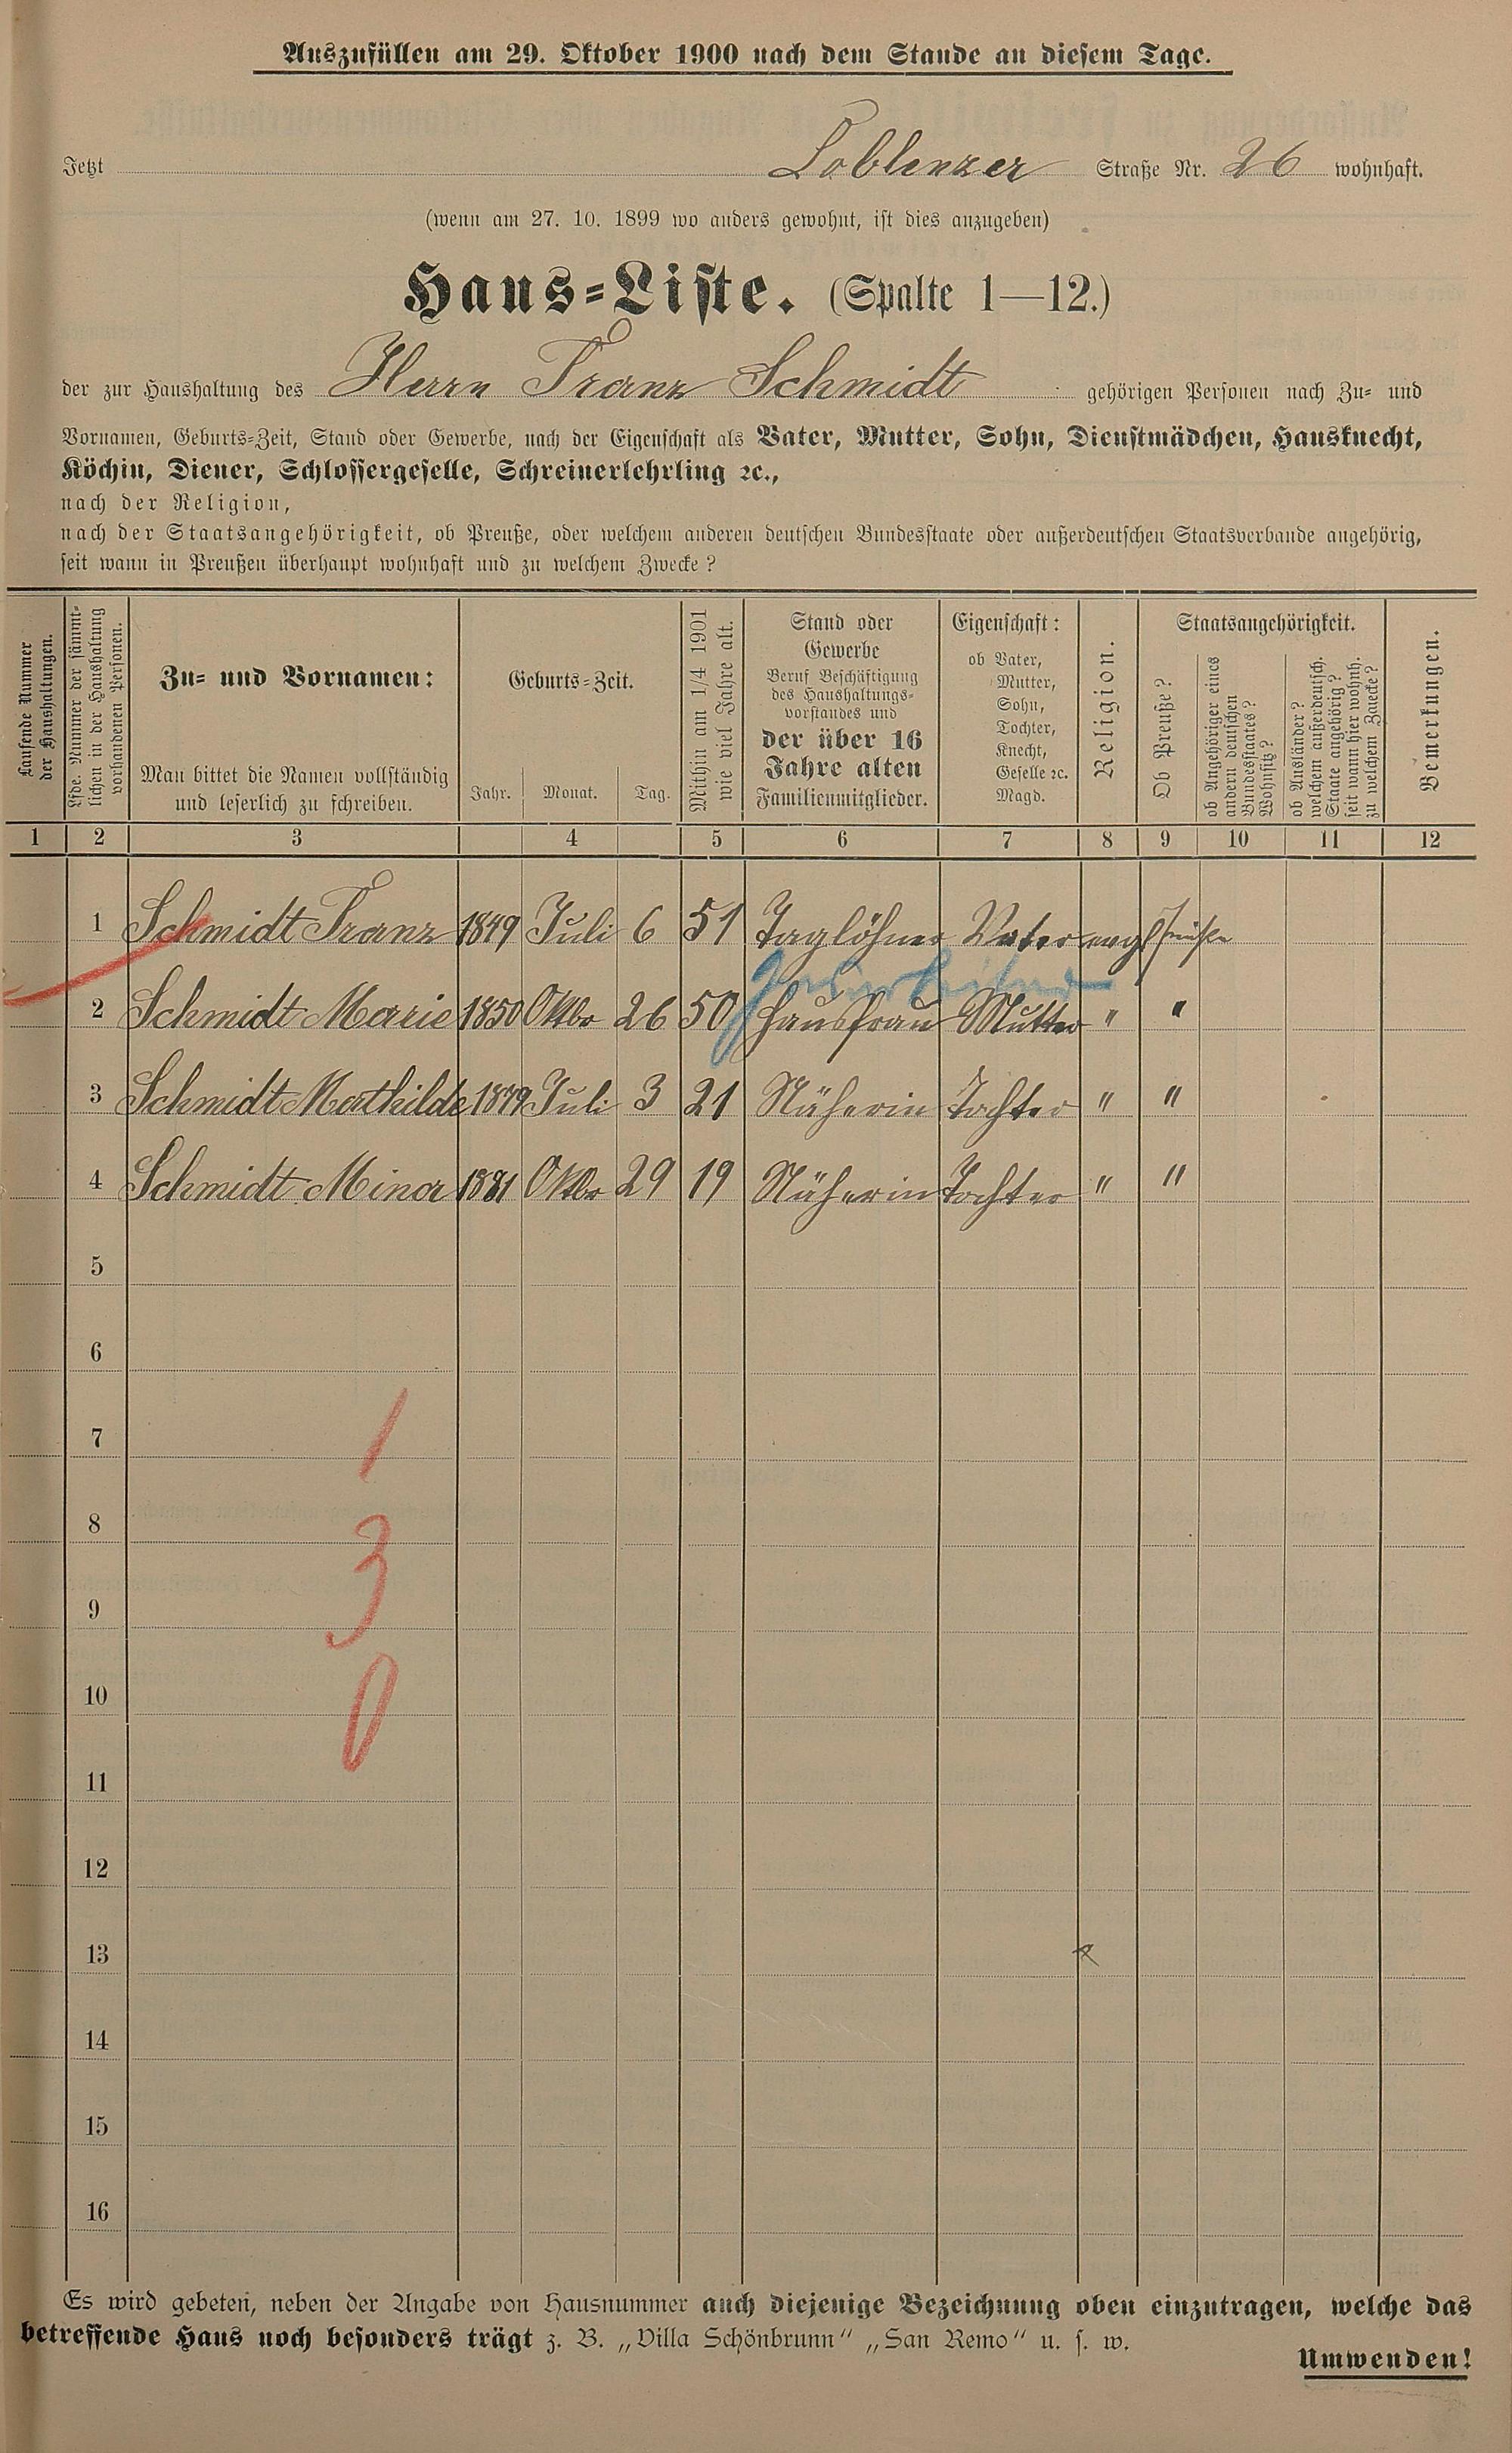 Auszufüllen am 29. Oktober 1900 nach dem Stande an diesem Tage.
Jetzt Coblenzer Straße Nr. 26 wohnhaft.
(wenn am 27. 10. 1899 wo anders gewohnt, ist dies anzugeben)
Haus-Liste. (Spalte 1—12.)
der zur Haushaltung des Herrn Franz Schmidt gehörigen Personen nach Zu- und
Vornamen, Geburts-Zeit, Stand oder Gewerbe, nach der Eigenschaft als Vater, Mutter, Sohn, Dienstmädchen, Hausknecht,
Köchin, Diener, Schlossergeselle, Schreinerlehrling ꝛc.,
nach der Religion,
nach der Staatsangehörigkeit, ob Preuße, oder welchem anderen deutschen Bundesstaate oder außerdeutschen Staatsverbande angehörig,
seit wann in Preußen überhaupt wohnhaft und zu welchem Zwecke?
Laufende Nummer
der Haushaltungen.
Lfde. Nummer der sämmt-
lichen in der Haushaltung
vorhandenen Personen.
Zu- und Vornamen:
Man bittet die Namen vollständig
und leserlich zu schreiben.
Geburts-Zeit.
Jahr. Monat. Tag.
Mithin am 1/4 1901
wie viel Jahre alt.
Stand oder
Gewerbe
Beruf Beschäftigung
des Haushaltungs-
vorstandes und
der über 16
Jahre alten
Familienmitglieder.
Eigenschaft:
ob Vater,
Mutter,
Sohn,
Tochter,
Knecht,
Geselle ꝛc.
Magd.
Religion.
Staatsangehörigkeit.
Ob Preuße?
ob Angehöriger eines
andern deutschen
Bundesstaates?
Wohnsitz?
ob Ausländer?
welchem außerdeutsch.
Staate angehörig?
seit wann hier wohnh.
zu welchem Zwecke?
Bemerkungen.
1 2 3 4 5 6 7 8 9 10 11 12
1 Schmidt Franz 1849 Juli 6 51 Taglöhner Vater evgl Preuße
2 Schmidt Marie 1850 Oktbr 26 50 Hausfrau Mutter " "
3 Schmidt Mathilde 1879 Juli 3 21 Näherin Tochter " "
4 Schmidt Mina 1881 Oktbr 29 19 Näherin Tochter " "
5
6
7
1
8
3
9
10
0
11
12
13
14
15
16
Es wird gebeten, neben der Angabe von Hausnummer auch diejenige Bezeichnung oben einzutragen, welche das
betreffende Haus noch besonders trägt z. B. „Villa Schönbrunn“ „San Remo“ u. s. w.
Umwenden!